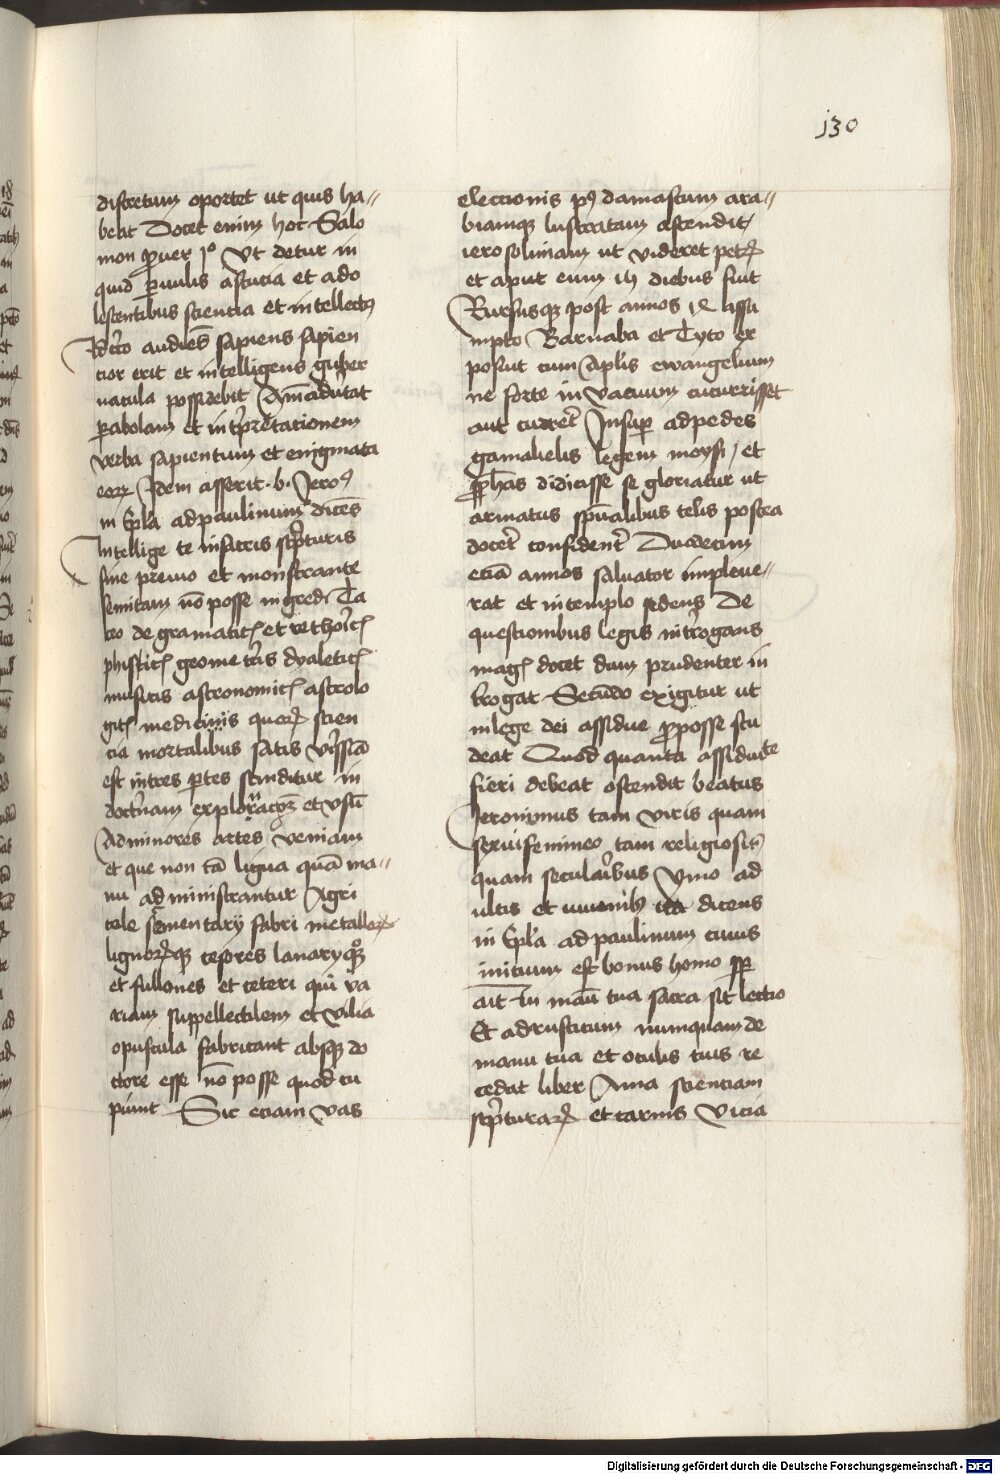 j30
discretum oportet ut quis ha//
beat Docet enim hoc Salo
mon ꝓuer jº Vt detur in
quid ꝑuulis astucia et ado
lescentibus sciencia et intellectꝰ
Idcͥco audiēs sapiens sapien
cior erit et intelligens guber
nacula possidebit Aīaduͥtat
ꝑabolam et intͥpretationem
verba sapientium et enigmata
eoꝝ Idem asserit ·b· Jeroꝰ
in Epl̄a ad paulinum dicēs
Intellige te in sacris scpͥturis
sine preuio et monstrante
semitam nō posse ingredi Ta
ceo de gramaticꝭ et rethorͥcꝭ
phisicꝭ geometrͥis dyaleticꝭ
musicis astronomicꝭ astrolo
gicꝭ medicinis quoꝝ scien
cia mortalibus satis
est in tres ꝑtes scinditur in
doctͥnam et vsū
Ad minores artes veniam
et que non tā ligua quā ma//
nu administrantur Agri
cole sementarij fabri metalloꝝ
lignoꝝqꝫ cesores lanaryqꝫ
et fullones et ceteri qui va
riam suppellectilem et vilia
opuscula fabricant absqꝫ do
ctore esse nō posse quod cu
piunt Sic eciam vas
eleccionis pꝰ damascum ara//
biamqꝫ lustratam ascendit
ierosolimam ut videret petꝝ
et aput eum diebus fuit
Rursusqꝫ post annos assu
mpto Barnaba et Tyto ex
posuit cum Aplīs ewangelium
ne forte in vacuum cucurrisset
aut currēt Insuꝑ ad pedes
gamalielis legem moysi et
ꝓphās didicisse se gloriatur ut
armatus spūalibus telis postea
docerēt confidentͥ Duodecim
eciā annos saluator impleue//
rat et in templo sedens De
questionibus legis intͥrogans
magꝭ docet dum prudenter in
trogat Secūdo exigitur ut
in lege dei assidue ꝓ posse stu
deat Quod quanta assiduite
fieri debeat ostendit beatus
Jeronimus tam viris quam
sexui femineo tam religiosis
quam secularͥbus ymo ad
ultis et iuuenibꝰ ita dicens
in Epl̄a ad paulinum cuius
inicium est bonus homo
ait In manū tua sacra sit lectio
Et ad rusticum numquam de
manu tua et oculis tuis re
cedat liber Ama scientiam
scpͥturaꝝ et carnis vicia
Digitalisierung gefördert durch die Deutsche Forschungsgemeinschaft - DFG